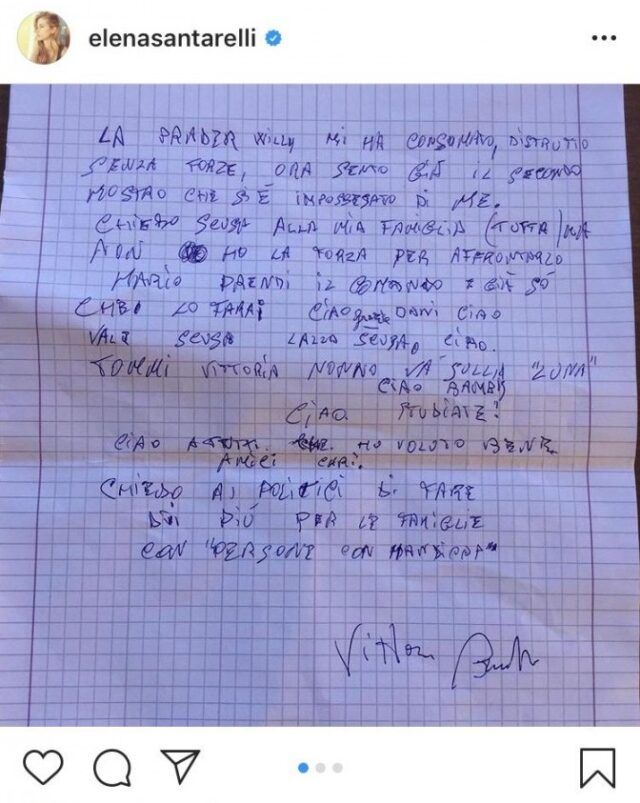 elenasantarelli
LA PRADER WILLY MI HA CONSUMATO, DISTRUTTO
SENZA FORZE, ORA SENTO GIÀ IL SECONDO
MOSTRO CHE SI È IMPOSSESSATO DI ME.
CHIEDO SCUSA ALLA MIA FAMIGLIA (TUTTA) MA
NON HO LA FORZA PER AFFRONTARLO
MARIO PRENDI IL COMANDO E GIÀ SÒ
CHE LO FARAI CIAO grazie DANI CIAO
VALE SCUSA LAZZA SCUSA, CIAO.
TOMMI VITTORIA NONNO VÀ SULLA "LUNA"
CIAO BAMBI
CIAO STUDIATE!
CIAO A TUTTI. HO VOLUTO BENE
AMICI CARI.
CHIEDO AI POLITICI DI FARE
DI PIÙ PER LE FAMIGLIE
CON "PERSONE CON HANDICAP"